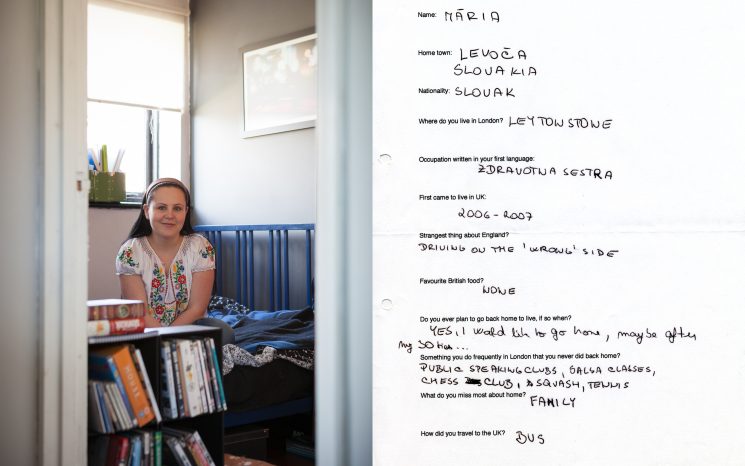 Name: MÁRIA
Home town: LEVOČA
SLOVAKIA
Nationality: SLOVAK
Where do you live in London? LEYTONSTONE
Occupation written in your first language:
ZDRAVOTNA SESTRA
First came to live in UK:
2006-2007
Strangest thing about England?
DRIVING ON THE 'WRONG' SIDE
Favourite British food?
NONE
Do you ever plan to go back home to live, if so when?
YES, I would like to go home, maybe after
my 30ties...
Something you do frequently in London that you never did back home?
PUBLIC SPEAKING CLUBS, SALSA CLASSES,
CHESS CLUB, SQUASH, TENNIS
What do you miss most about home? FAMILY
How did you travel to the UK? BUS